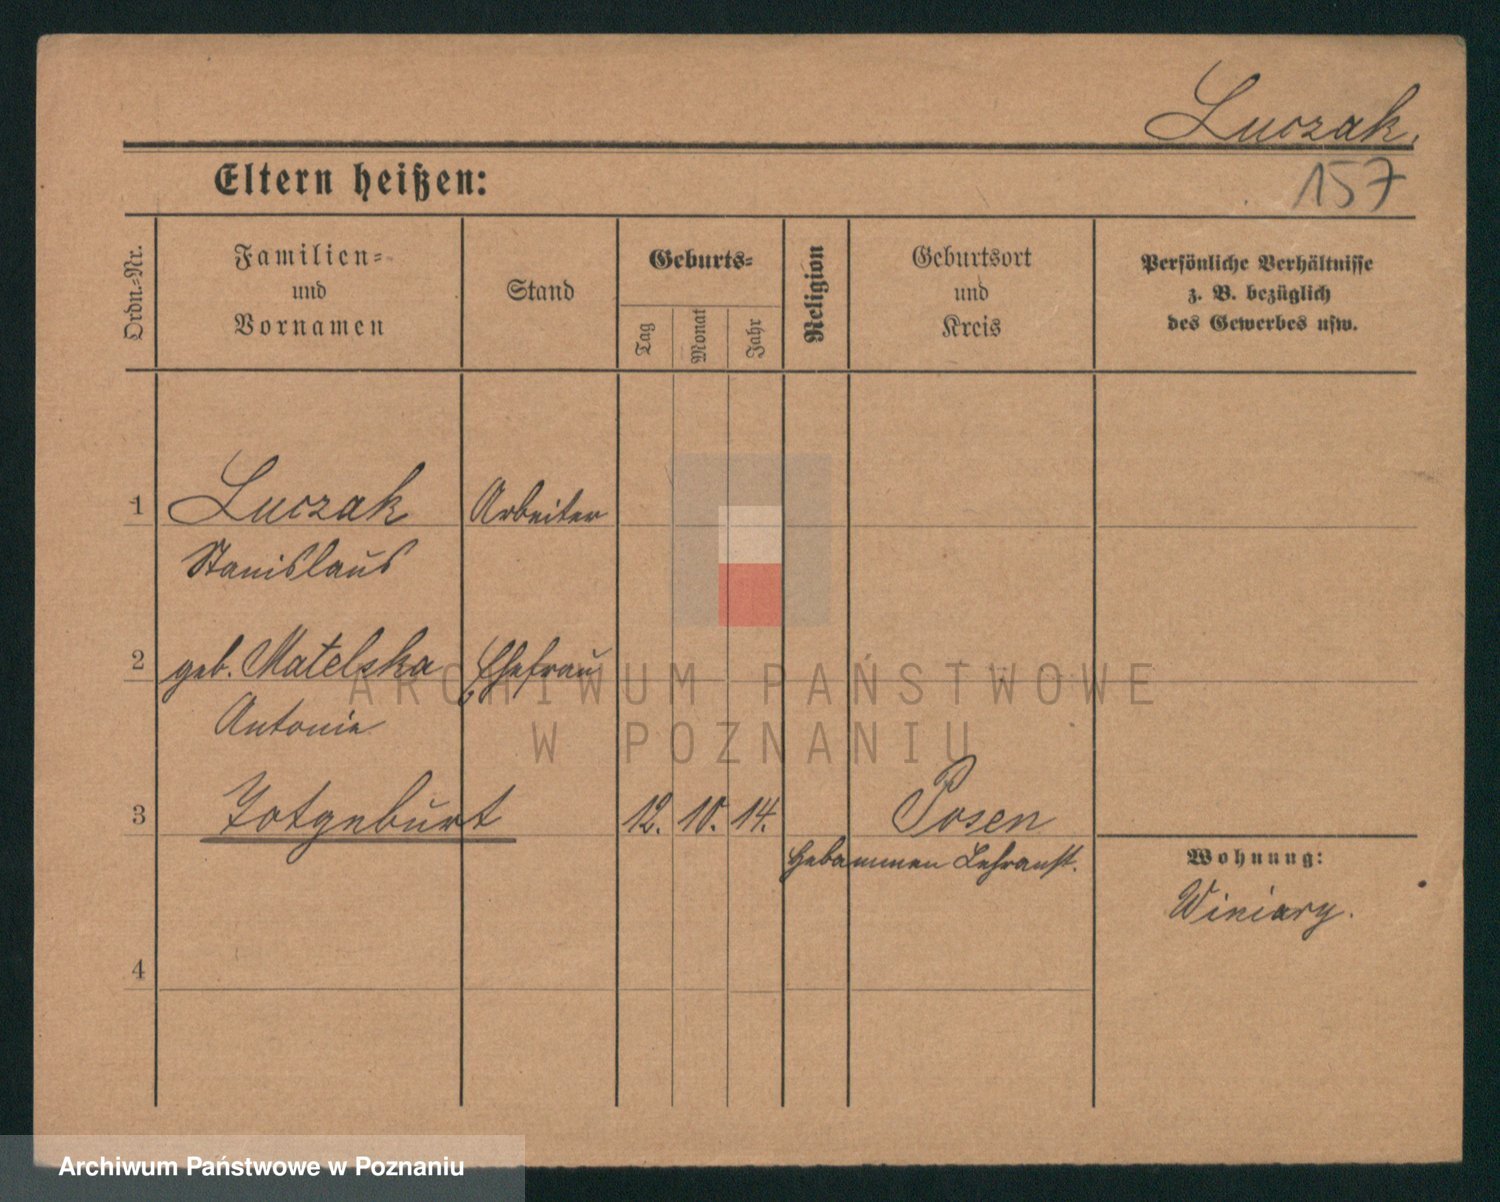 Luczak.
157
Eltern heißen:
Ordn.-Nr.
Familien-
und
Vornamen
Stand
Geburts-
Tag
Monat
Jahr
Religion
Geburtsort
und
Kreis
Persönliche Verhältnisse
z. B. bezüglich
des Gewerbes usw.
1 Luczak Arbeiter
Stanislaus
2 geb. Matelska Ehefrau
Antonie
ARCHIWUM PAŃSTWOWE
W POZNANIU
3 Totgeburt 12. 10. 14. Posen
Hebammen Lehranst.
Wohnung:
Winiary.
4
Archiwum Państwowe w Poznaniu